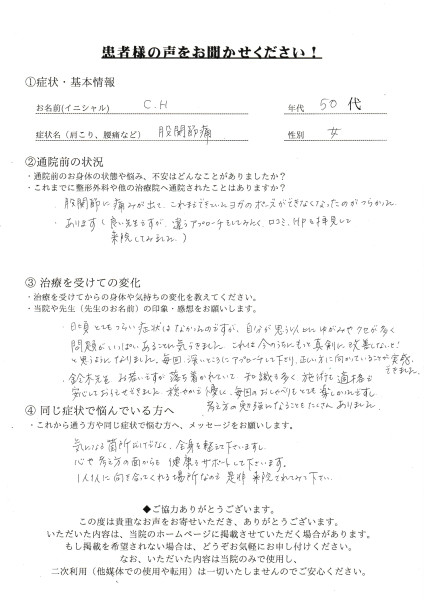 患者様の声をお聞かせください！
①症状・基本情報
お名前(イニシャル) C.H 年代 50代
症状名（肩こり、腰痛など） 股関節痛 性別 女
②通院前の状況
・通院前のお身体の状態や悩み、不安はどんなことがありましたか？
・これまでに整形外科や他の治療院へ通院されたことはありますか？
・股関節に痛みが出て、これまでできていたヨガのポーズができなくなったのがつらかった。
・あります(良い先生ですが、違うアプローチをしてみたく、口コミ、HPを拝見して
来院してみました。)
③ 治療を受けての変化
・治療を受けてからの身体や気持ちの変化を教えてください。
・当院や先生（先生のお名前）の印象・感想をお願いします。
・日頃とてもつらい症状はなかったのですが、自分が思う以上にゆがみやクセが多く
問題がいっぱいあることに気づきました。これは今のうちにもっと真剣に改善しなければ！
と思うようになりました。毎回、深いところにアプローチして下さり、正しい方に向かっていることが実感
できました。
・鈴木先生 お若いですが落ち着かれていて、知識も多く施術も適格で
安心しておまかせできました。穏やかで優しく、毎回のおしゃべりもとても楽しかったです。
考え方の勉強になることもたくさんありました。
④ 同じ症状で悩んでいる方へ
・これから通う方や同じ症状で悩む方へ、メッセージをお願いします。
気になる箇所だけでなく、全身を整えて下さいます。
心や考え方の面からも健康をサポートして下さいます。
1人1人に向き合ってくれる場所なので是非来院されてみて下さい。
◆ご協力ありがとうございます。
この度は貴重なお声をお寄せいただき、ありがとうございます。
いただいた内容は、当院のホームページに掲載させていただく場合があります。
もし掲載を希望されない場合は、どうぞお気軽にお申し付けください。
なお、いただいた内容は当院のみで使用し、
二次利用（他媒体での使用や転用）は一切いたしませんのでご安心ください。